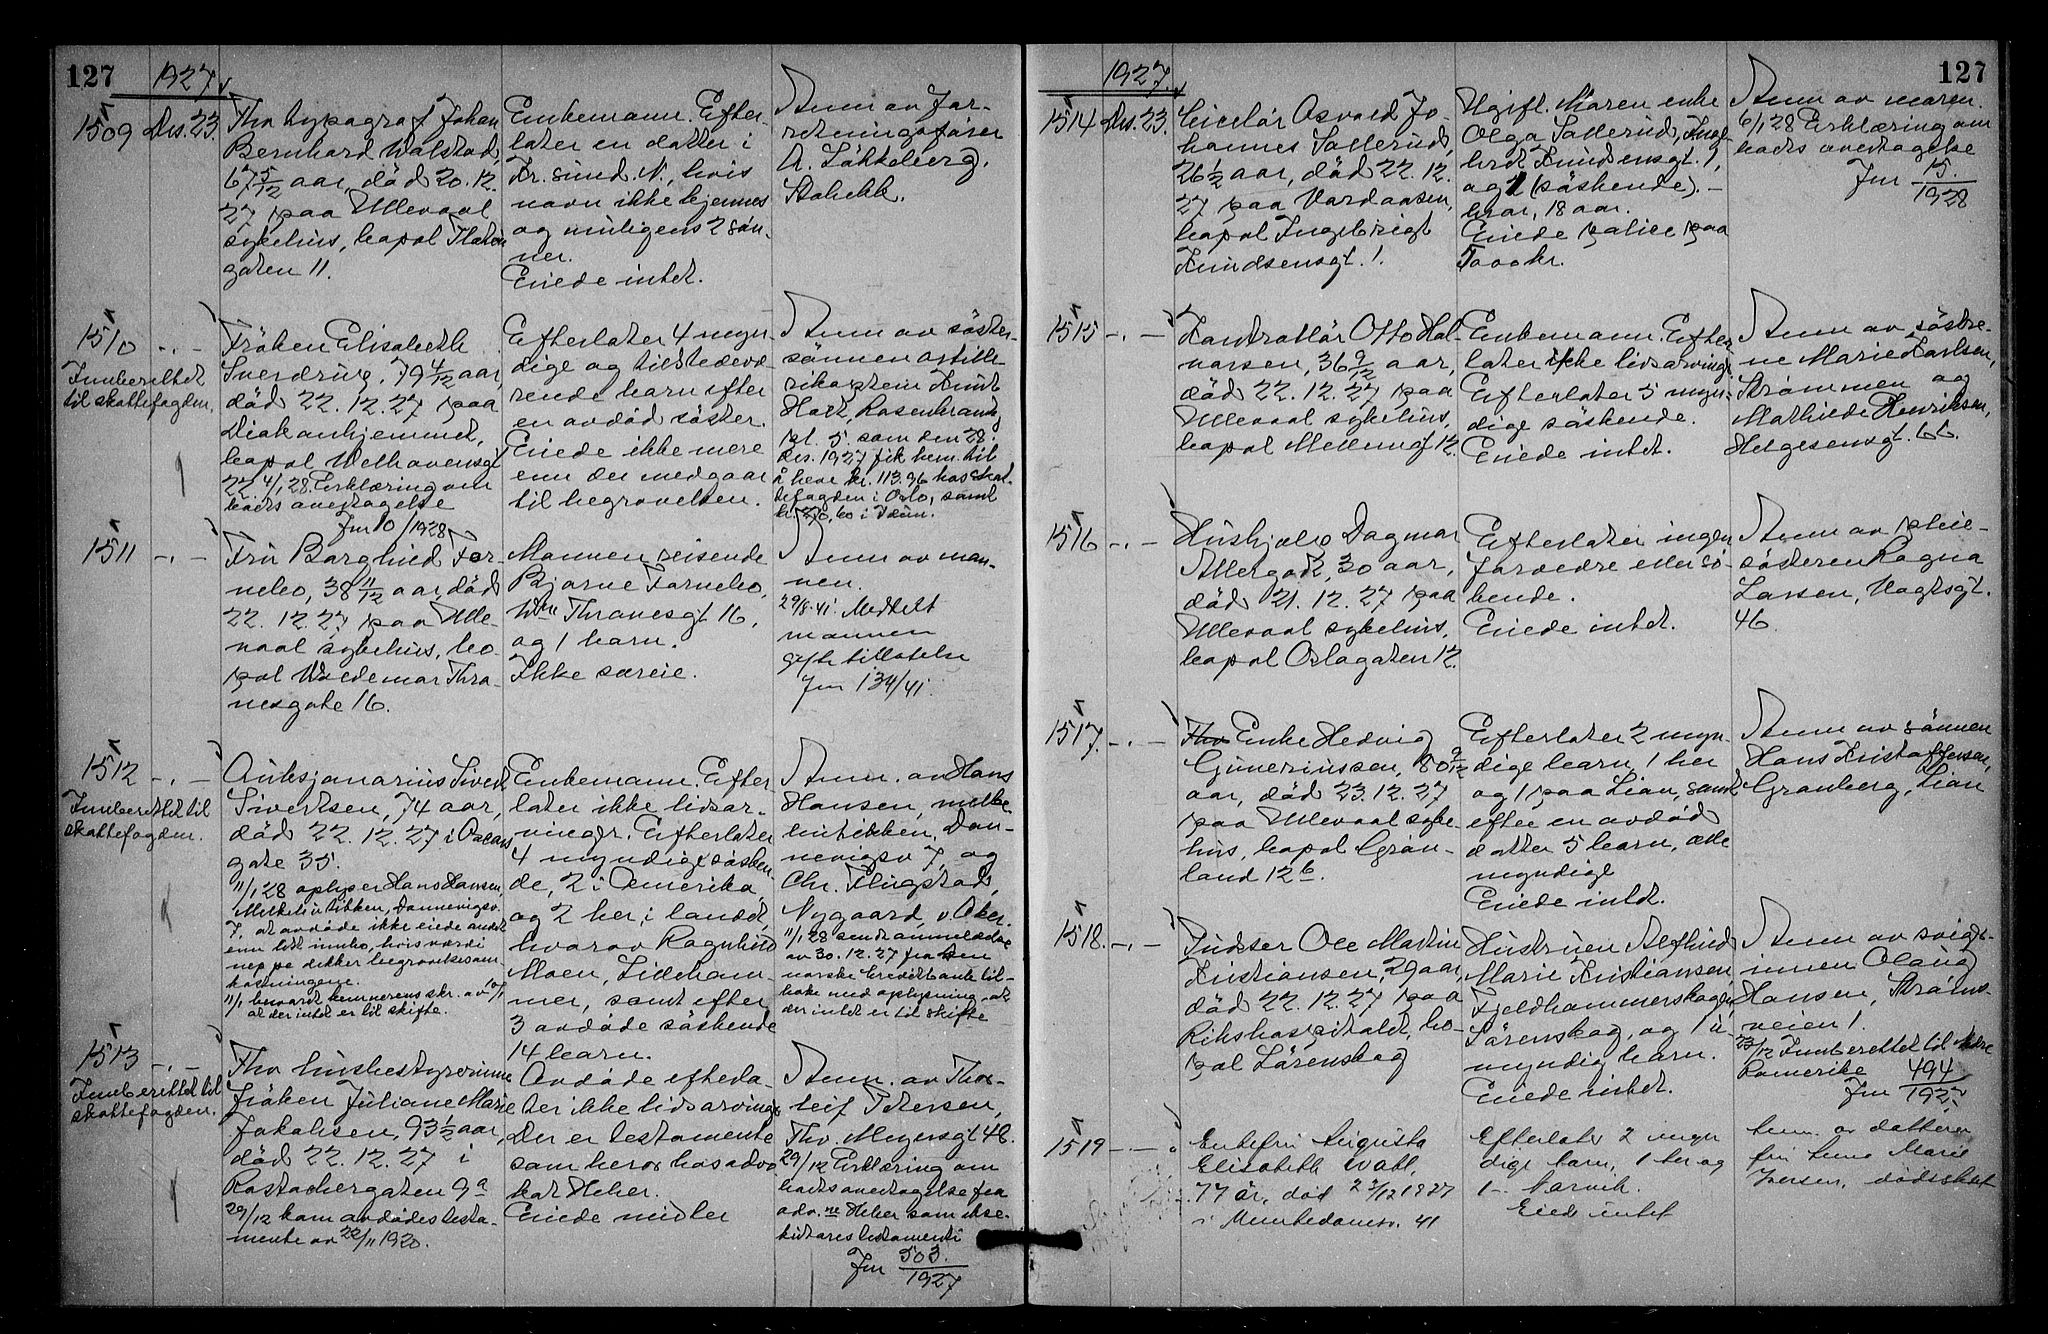 127
1927.
1509
Des. 23.
Fhv. typograf Johan
Bernhard Walstad,
67 5/12 aar, död 20.12.
27 paa Ullevaal
sykehus, bopæl
gaten 11.
Enkemann. Efter-
later en datter i
Kr.sund N., hvis
navn ikke kjennes
og muligens 2 søn-
ner.
Eiede intet.
Anm. av for-
retningsfører
A. Løkkeberg,
1510
Innberettet
til skattefogden.
Fröken Elisabeth
Sverdrup, 79 4/12 aar,
död 22.12.27 paa
Diakonhjemmet,
bopæl Welhavensgt
22. 4/1 28. Erklæring om
boets overtagelse
Jnr 10/1928
Efterlater 4 myn-
dige og tilstedevæ-
rende barn efter
en avdöd söster.
Eiede ikke mere
enn der medgaar
til begravelsen.
Anm. av söster-
sönnen artille-
rikaptein Knut
Rosenkrantz
pl. 5. som den 28.
des. 1927 fik bem. til
å heve kr. 113.96 hos skat-
tefogden i Oslo, samt
kr. 270,60 i
1511
Fru Borghild For-
nebo, 38 11/12 aar, död
22.12.27 paa Ulle-
vaal sykehus, bo-
pæl Waldemar Thra-
nesgate 16.
Mannen reisende
Bjarne Fornebo,
Wm Thranesgt 16,
og 1 barn.
Ikke særeie.
Anm. av man-
nen.
29/8.41. Meddelt
mannen
gifte tillatelse
Jnr 134/41.
1512
Innberettet til
skattefogden.
Auksjonarius Sivert
Sivertsen, 74 aar,
död 22.12.27 i Oscars
gate 35.
11/1 28 oplyser Hans Hansen,
Melkebutikken, Dannevigsv.
7, at avdöde ikke eiede andet
enn litt innbo, hvis værdi
neppe dekker begravelsesom-
kostningene.
11/1 besvart kemnerens skr. av 10/1
at der intet er til skifte.
Enkemann. Efter-
later ikke livsar-
vinger. Efterlater
4 myndige sösken-
de, 2 i Amerika,
og 2 her i landet,
hvorav Ragnhild
Moen, Lilleham-
mer, samt efter
3 avdöde söskende
14 barn.
Anm. av Hans
Hansen, melke-
butikken, Dan-
nevigsv 7, og
Chr. Flugstad,
Nygaard, v. Aker.
11/1 28 sendt anmeldelse
av 30.12.27 fra Den
norske Creditbank til-
bake med oplysning at
der intet er til skifte
1513
Innberettet til
skattefogden.
Fhv husbestyrerinne
Fröken Juliane Marie
Jakobsen, 93 1/2 aar,
död 22.12.27 i
Rostockergaten 9a
29/12 kom avdödes testa-
mente av 22/11 1920.
Avdöde efterla-
ter ikke livsarvinger
Der er testamente
som beror hos advo-
kat Heber.
Eiede midler
Anm. av Thor-
leif Petersen,
Thv. Meyersgt 48.
29/12 Erklæring om
boets overtagelse fra
adv. Heber som ekse-
kutores testamenti
Jnr 503/1927
127
1927.
1514
Des. 23.
Ciselör Osvald Jo-
hannes Sollerud,
26 1/2 aar, död 22.12.
27 paa Vardaasen,
bopæl Ingebrigt
Knudsensgt. 1.
Ugift. Moren enke
Olga Sollerud, Inge-
bret Knudsensgt. 1,
og 1 (söskende). -
bror, 18 aar.
Eiede police paa
5000 kr.
Anm. av moren.
6/1 28 Erklæring om
boets overtagelse
Jnr 15./1928
1515
Kontrollör Otto Hal-
vorsen, 36 9/12 aar,
död 22.12.27 paa
Ullevaal sykehus,
bopæl Mellemgt 12.
Enkemann. Efter-
later ikke livsarvinger.
Efterlater 5 myn-
dige söskende.
Eiede intet.
Anm. av söstre-
ne Marie Karlsen,
Strømmen og
Mathilde Henriksen,
Helgesensgt. 66.
1516
Hushjelp Dagmar
30 aar,
död 21.12.27 paa
Ullevaal sykehus,
bopæl Oslogaten 12.
Efterlater ingen
forældre eller sö-
kende.
Eiede intet.
Anm. av pleie-
sösteren Ragna
Larsen, Vogtsgt.
46.
1517.
Fhv Enke Hedvig
Guneriussen, 80 9/12
aar, död 23.12.27
paa Ullevaal syke-
hus, bopæl Grøn-
land 12b.
Efterlater 2 myn-
dige barn, 1 her
og 1 paa Lian, samt
efter en avdöd
datter 5 barn, alle
myndige
Eiede intet.
Anm. av sönnen
Hans Kristoffersen,
Granberg, Lian
1518.
Pudser Ole Martin
Kristiansen, 29 aar,
död 22.12.27 paa
Rikshospitalet, bo-
pæl Lørenskog
Hustruen Alfhild
Marie Kristiansen,
Fjeldhammerskogen,
Lørenskog, og 1 u-
myndig barn.
Eiede intet.
Anm. av svige-
innen Olaug
Hansen, Strøms-
veien 1.
23/12 Innberettet til Nedre
Romerike 494
Jnr 1927.
1519
Enkefru Augusta
Elisabeth Wall,
77 år, död 22/12 1927
i Munkedamsv. 41
Efterlater 2 myn
dige barn, 1 her og
1 i Narvik.
Eied intet
Anm. av datteren
fru Anna Marie
Iversen, dödsattest